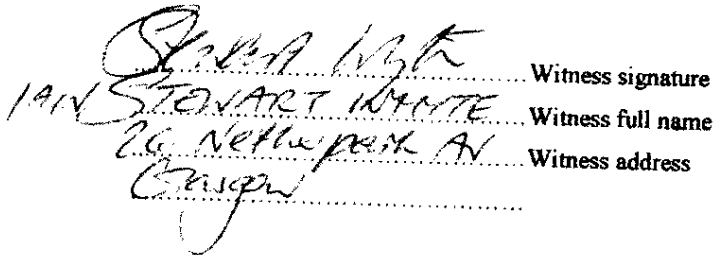 Stewart Whyte Witness signature
IAIN STEWART WHYTE Witness full name
26 Netherpark Av Witness address
Glasgow